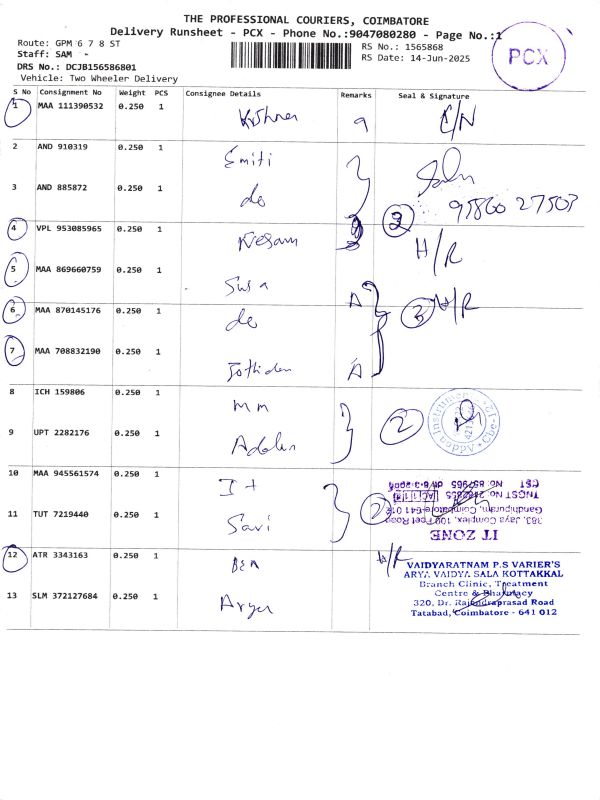 THE PROFESSIONAL COURIERS, COIMBATORE
Delivery Runsheet - PCX - Phone No.:9047080280 - Page No.:1
Route: GPM 6 7 8 ST
RS No.: 1565868
PCX
Staff: SAM -
RS Date: 14-Jun-2025
DRS No.: DCJB156586801
Vehicle: Two Wheeler Delivery
S No Consignment No Weight PCS Consignee Details Remarks Seal & Signature
1 MAA 111390532 0.250 1
2 AND 910319 0.250 1 Emiti
3 AND 885872 0.250 1 do 3
95860 27503
4 VPL 953085965 0.250 1 H/R
5 MAA 869660759 0.250 1 A
6 MAA 870145176 0.250 1 do 3 H/R
7 MAA 708832190 0.250 1 A
8 ICH 159806 0.250 1 mm
9 UPT 2282176 0.250 1 2
10 MAA 945561574 0.250 1 It
11 TUT 7219440 0.250 1 Savi 2
IT ZONE
383, Jaya Complex, 100 Feet Road
Gandhipuram, Coimbatore-641 012
12 ATR 3343163 0.250 1 H/R
13 SLM 372127684 0.250 1 Arya
VAIDYARATNAM P.S VARIER'S
ARYA VAIDYA SALA KOTTAKKAL
Branch Clinic, Treatment
Centre & Pharmacy
320, Dr. Rajendraprasad Road
Tatabad, Coimbatore - 641 012